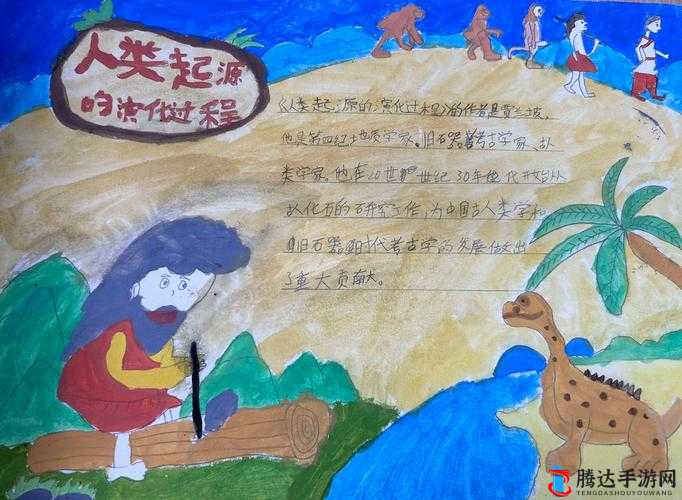 人类起源
的演化过程
《人类起源的演化过程》的作者是贾兰坡,
他是第四纪地质学家.旧石器考古学家、
类学家。他在20世纪30年代开始从
化石的研究工作,为中国古人类学和
旧石器时代考古学的发展做出
了重大贡献。
腾达手游网
TENGDASHOUYOUWANG